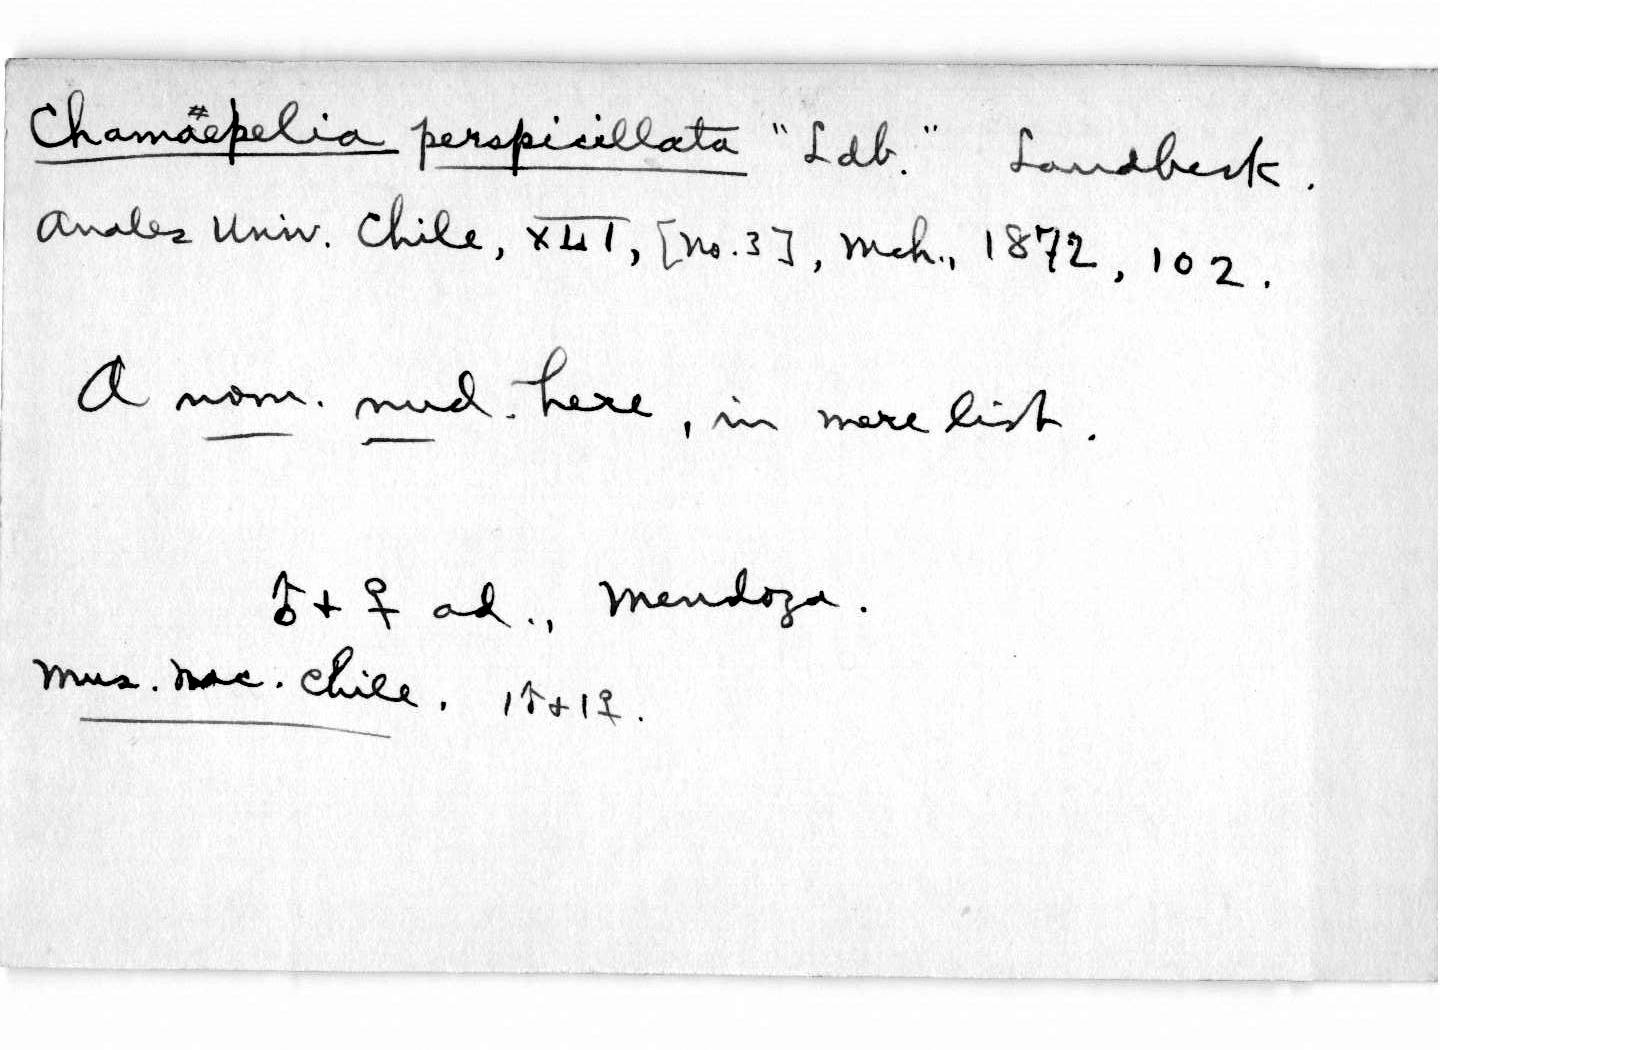 Chamäepelia perspicillata "Ldb." Landbeck.
Anales Univ. Chile, XLI, [No. 3], Mch., 1872, 102.
A nom. nud. here, in mere list.
♂ + ♀ ad., Mendoza.
Mus. Nac. Chile. 1♂+1♀.